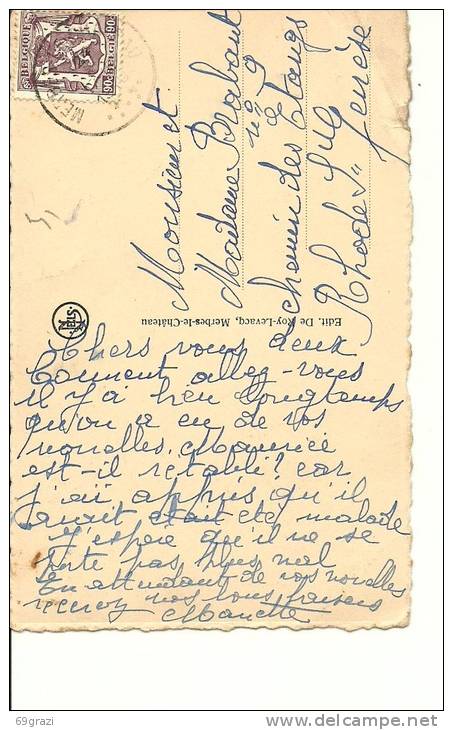 BELGIQUE BELGIE
90c
Monsieur et
Madame Brabant
n° 9
Chemin des Etangs
Rhode St Genèse
Edit. De Roy-Levacq, Merbes-le-Château
NELS
Chers vous deux
Comment allez-vous
il y a bien longtemps
qu'on a eu de vos
nouvelles. Maurice
est-il rétabli? car
j'ai appris qu'il
avait était été malade
J'espère qu'il ne se
porte pas plus mal
En attendant de vos nouvelles
recevez nos bons baisers
69grazi
www.delcampe.net